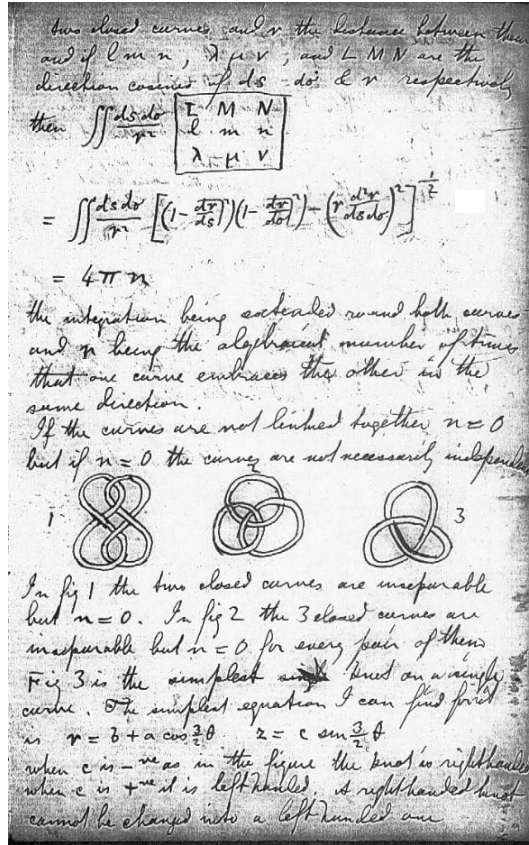 two closed curves and r the distance between them
and if l m n, λ μ ν, and L M N are the
direction cosines of ds dσ & r respectively
then ∬ ds dσ / r² | L M N |
| l m n |
| λ μ ν |
= ∬ ds dσ / r² [(1 - (dr/ds)²)(1 - (dr/dσ)²) - (r d²r/ds dσ)²]^½
= 4 π n
the integration being extended round both curves
and n being the algebraical number of times
that one curve embraces the other in the
same direction.
If the curves are not linked together n = 0
but if n = 0 the curves are not necessarily independent
1 2 3
In fig 1 the two closed curves are inseparable
but n = 0. In fig 2 the 3 closed curves are
inseparable but n = 0 for every pair of them
Fig 3 is the simplest knot on a single
curve. The simplest equation I can find for it
is r = b + a cos 3/2 θ z = c sin 3/2 θ
when c is -ve as in the figure the knot is righthanded
when c is +ve it is lefthanded. A righthanded knot
cannot be changed into a left handed one